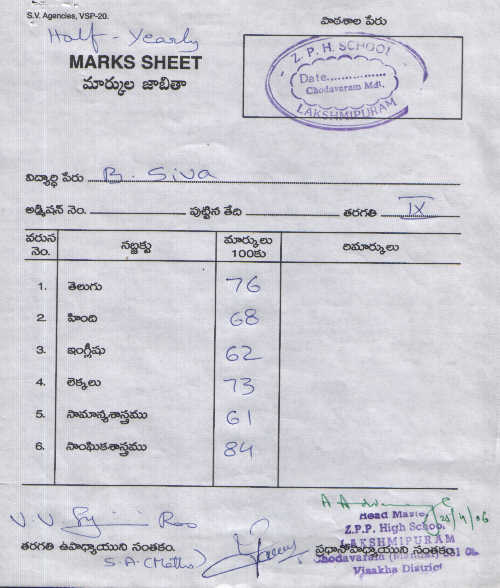 S.V. Agencies, VSP-20.
పాఠశాల పేరు
Half - Yearly
MARKS SHEET
మార్కుల జాబితా
Z. P. H. SCHOOL
Date...............
Chodavaram Mdl.
LAKSHMIPURAM
విద్యార్థి పేరు B. Siva
అడ్మిషన్ నెం. పుట్టిన తేది తరగతి IX
వరుస నెం. సబ్జక్టు మార్కులు 100కు రిమార్కులు
1. తెలుగు 76
2. హింది 68
3. ఇంగ్లీషు 62
4. లెక్కలు 73
5. సామాన్యశాస్త్రము 61
6. సాంఘికశాస్త్రము 84
Head Master
Z.P.P. High School
LAKSHMIPURAM
తరగతి ఉపాధ్యాయుని సంతకం. ప్రధానోపాధ్యాయుని సంతకం
S.A (Maths)
Chodavaram (Mandal)
Visakha District